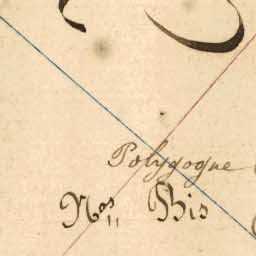 Polygogne
Nos 11 Bis